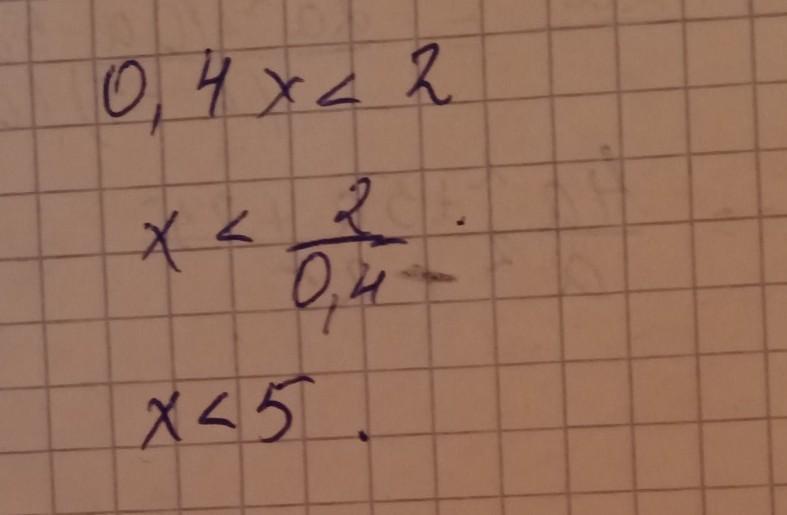 0,4x < 2
x < 2/0,4
x < 5.